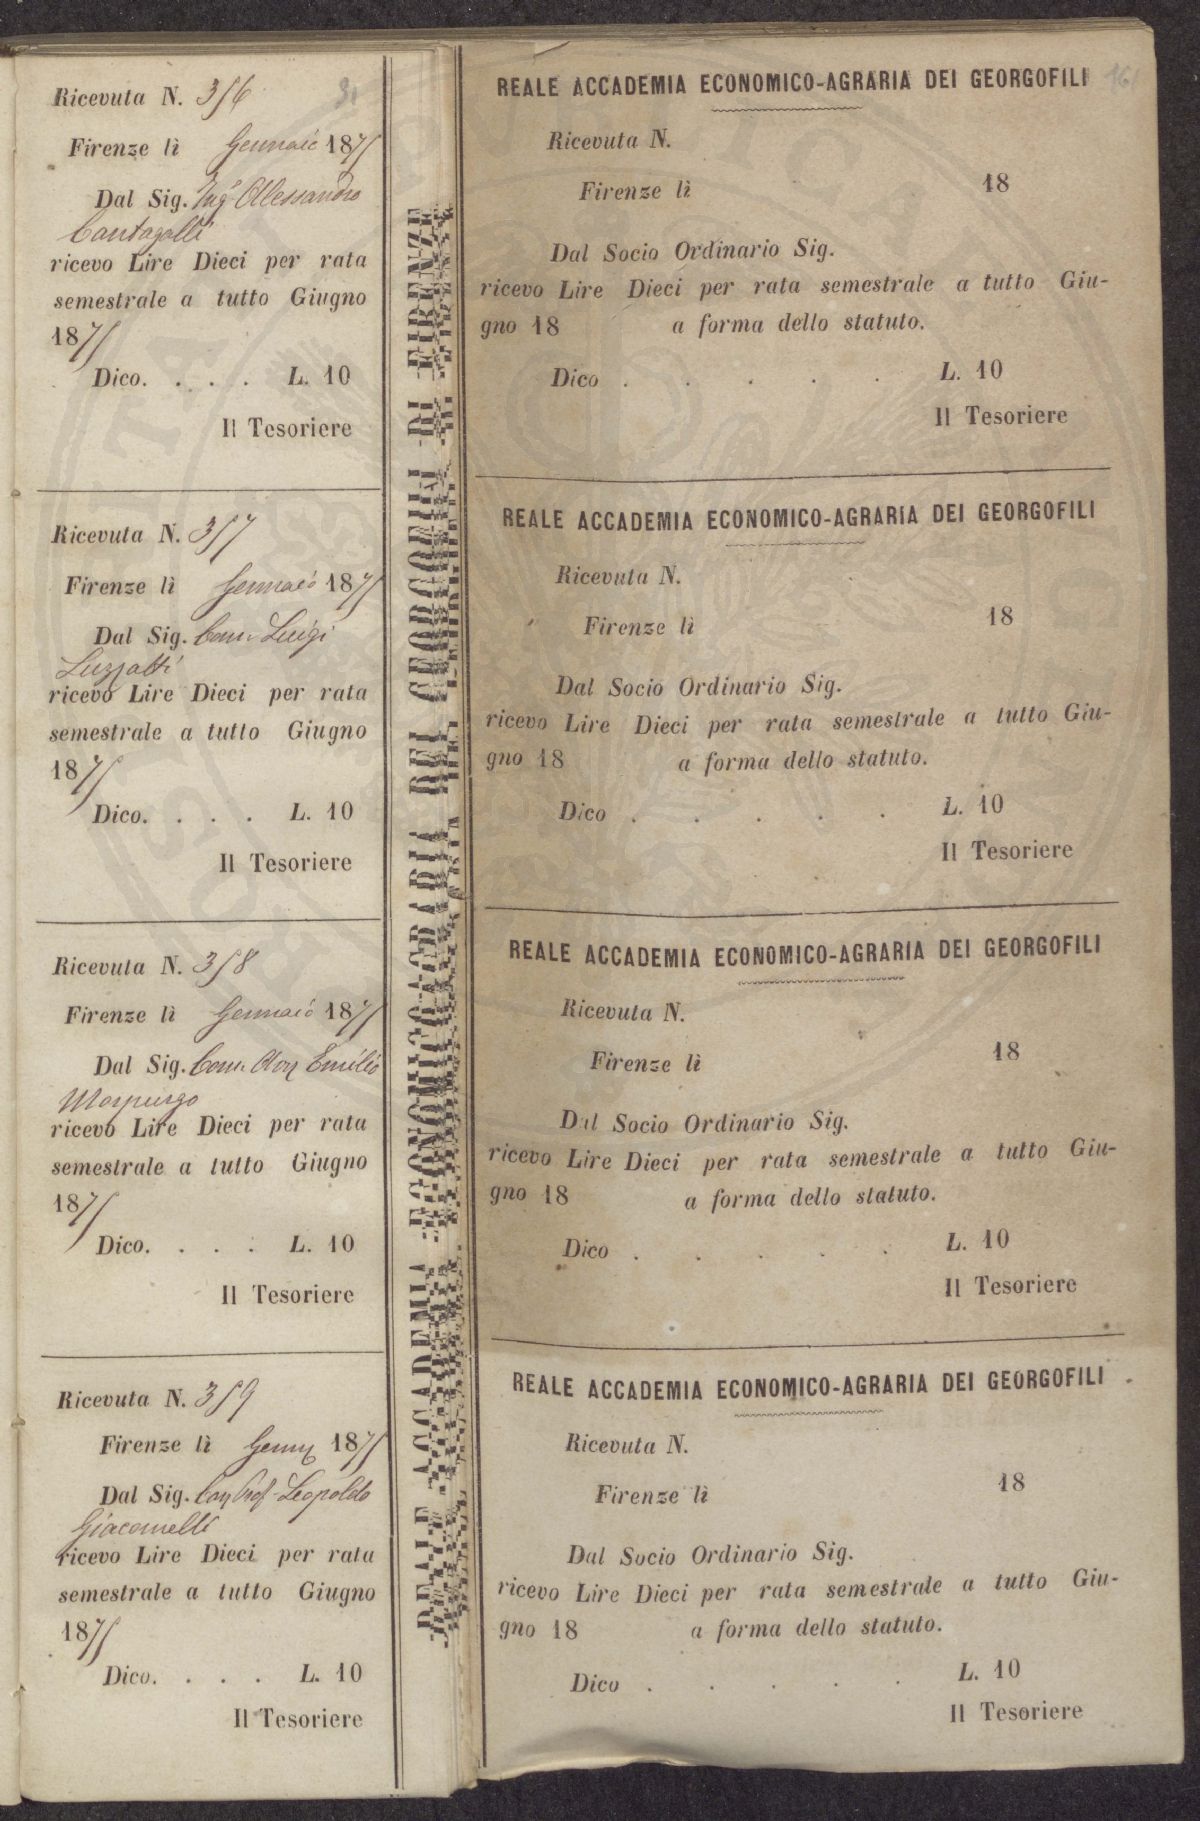 Ricevuta N. 356
Firenze lì Gennaio 1875
Dal Sig. Ing.e Alessandro
Cantagalli
ricevo Lire Dieci per rata
semestrale a tutto Giugno
1875
Dico. . . . L. 10
Il Tesoriere
Ricevuta N. 357
Firenze lì Gennaio 1875
Dal Sig. Com. Luigi
Luzzatti
ricevo Lire Dieci per rata
semestrale a tutto Giugno
1875
Dico. . . . L. 10
Il Tesoriere
Ricevuta N. 358
Firenze lì Gennaio 1875
Dal Sig. Com. Emilio
Morpurgo
ricevo Lire Dieci per rata
semestrale a tutto Giugno
1875
Dico. . . . L. 10
Il Tesoriere
Ricevuta N. 359
Firenze lì 1875
Dal Sig. Prof. Leopoldo
Giacomelli
ricevo Lire Dieci per rata
semestrale a tutto Giugno
1875
Dico. . . . L. 10
Il Tesoriere
REALE ACCADEMIA ECONOMICO-AGRARIA DEI GEORGOFILI DI FIRENZE
REALE ACCADEMIA ECONOMICO-AGRARIA DEI GEORGOFILI
Ricevuta N.
Firenze lì 18
Dal Socio Ordinario Sig.
ricevo Lire Dieci per rata semestrale a tutto Giu-
gno 18 a forma dello statuto.
Dico . . . . . L. 10
Il Tesoriere
REALE ACCADEMIA ECONOMICO-AGRARIA DEI GEORGOFILI
Ricevuta N.
Firenze lì 18
Dal Socio Ordinario Sig.
ricevo Lire Dieci per rata semestrale a tutto Giu-
gno 18 a forma dello statuto.
Dico . . . . . L. 10
Il Tesoriere
REALE ACCADEMIA ECONOMICO-AGRARIA DEI GEORGOFILI
Ricevuta N.
Firenze lì 18
Dal Socio Ordinario Sig.
ricevo Lire Dieci per rata semestrale a tutto Giu-
gno 18 a forma dello statuto.
Dico . . . . . L. 10
Il Tesoriere
REALE ACCADEMIA ECONOMICO-AGRARIA DEI GEORGOFILI
Ricevuta N.
Firenze lì 18
Dal Socio Ordinario Sig.
ricevo Lire Dieci per rata semestrale a tutto Giu-
gno 18 a forma dello statuto.
Dico . . . . . L. 10
Il Tesoriere